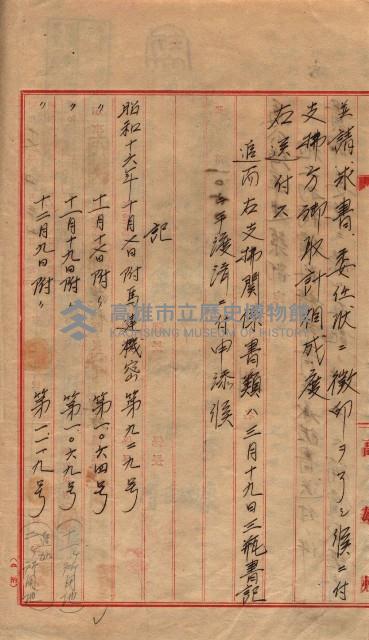 並請求書、委任状ニ徴印ヲ了シ候ニ付
支拂方御取計相成度
右送付ス
追而右支拂関係書類ハ三月十九日三瓶書記
渡済ニ付申添候
記
昭和十六年十月 日附馬建機密第九二九号
〃 十一月 日附〃 第一〇六四号
〃 十一月十九日附〃 第一〇六九号
〃 十二月九日附〃 第一一一九号
高雄市立歷史博物館
KAOHSIUNG MUSEUM OF HISTORY
高雄